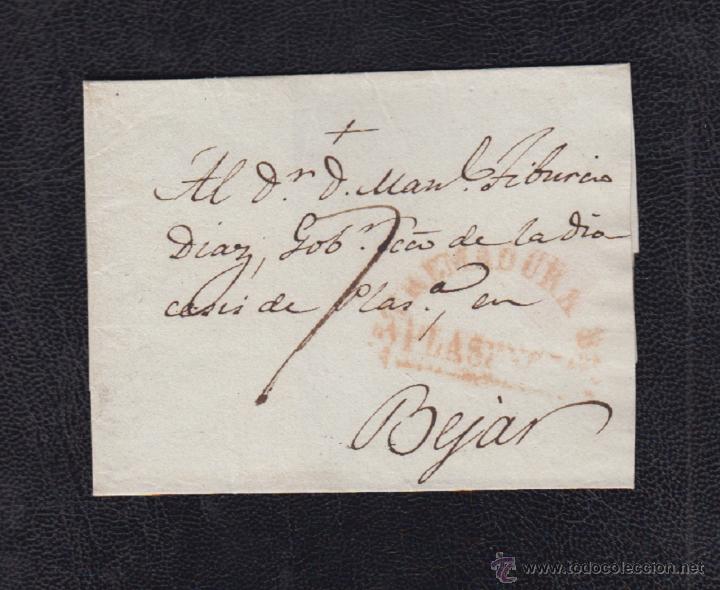 +
Al Dn. D. Manl. Tiburcio
Diaz, Gobr. ecco de la dio
cesis de Plasa, en
Bejar
7
EXTREMADURA
PLAS
www.todocoleccion.net